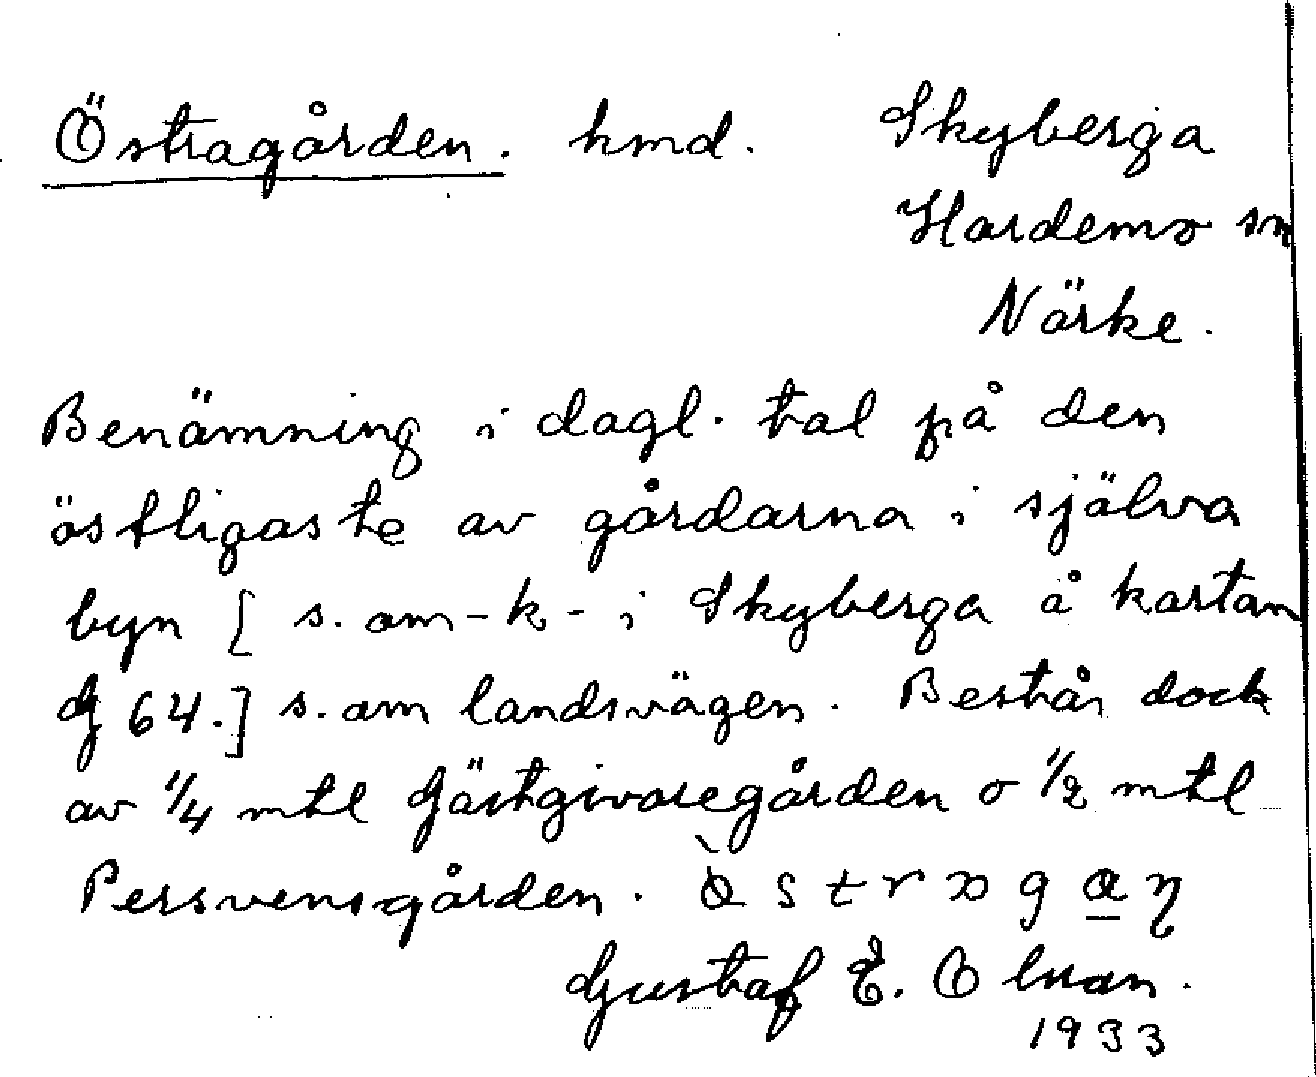 Östragården. hmd. Skyberga
Hardemo sn
Närke.
Benämning i dagl. tal på den
östligaste av gårdarna i själva
byn [ s. om - k - i Skyberga å kartan
G 64.] s. om landsvägen. Består dock
av 1/4 mtl Gästgivaregården o 1/2 mtl
Persvensgården.
Gustaf E. Olsson.
1933